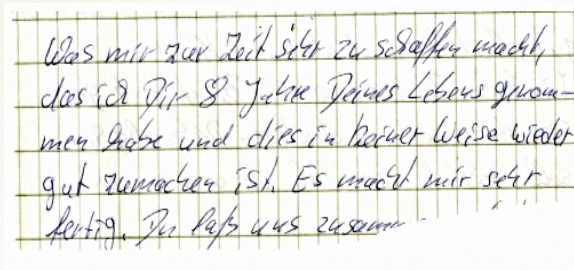 Was mir zur Zeit sehr zu schaffen macht,
das ich Dir 8 Jahre Deines Lebens genom-
men habe und dies in keiner Weise wieder
gut zumachen ist. Es macht mir sehr
fertig. Du laß uns zusamm